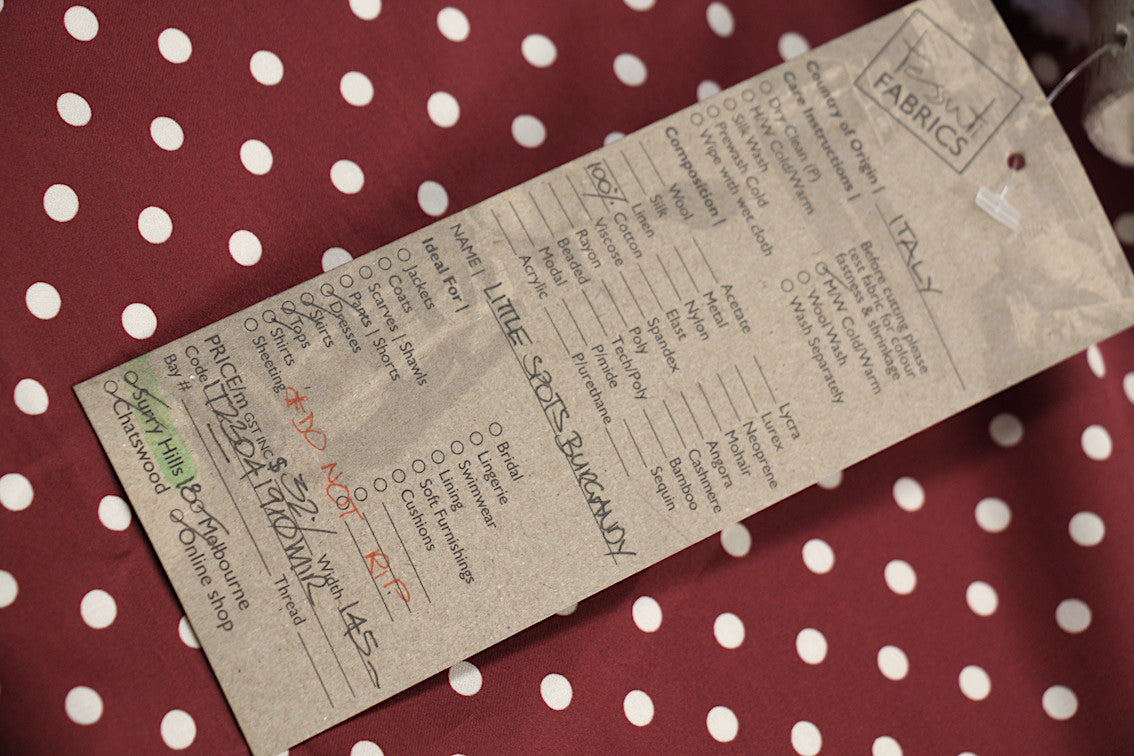 Tessuti
FABRICS
Country of Origin | ITALY
Care Instructions |
Before cutting please
test fabric for colour
fastness & shrinkage
Dry Clean (P)
H/W Cold/Warm
Silk Wash
Prewash Cold
Wipe with wet cloth
M/W Cold/Warm
Wool Wash
Wash Separately
Composition |
Wool
Silk
Linen
100% Cotton
Viscose
Rayon
Beaded
Modal
Acrylic
Acetate
Metal
Nylon
Elast
Spandex
Poly
Tech/Poly
P/mide
P/urethane
Lycra
Lurex
Neoprene
Mohair
Angora
Cashmere
Bamboo
Sequin
NAME | LITTLE SPOTS BURGANDY
Ideal For |
Jackets
Coats
Scarves | Shawls
Pants | Shorts
Dresses
Skirts
Tops
Shirts
Sheeting
Bridal
Lingerie
Swimwear
Lining
Soft Furnishings
Cushions
* DO NOT RIP
PRICE/m GST INC $ 32.- Width 145
Code
Bay # Thread
Surry Hills Melbourne
Chatswood Online shop